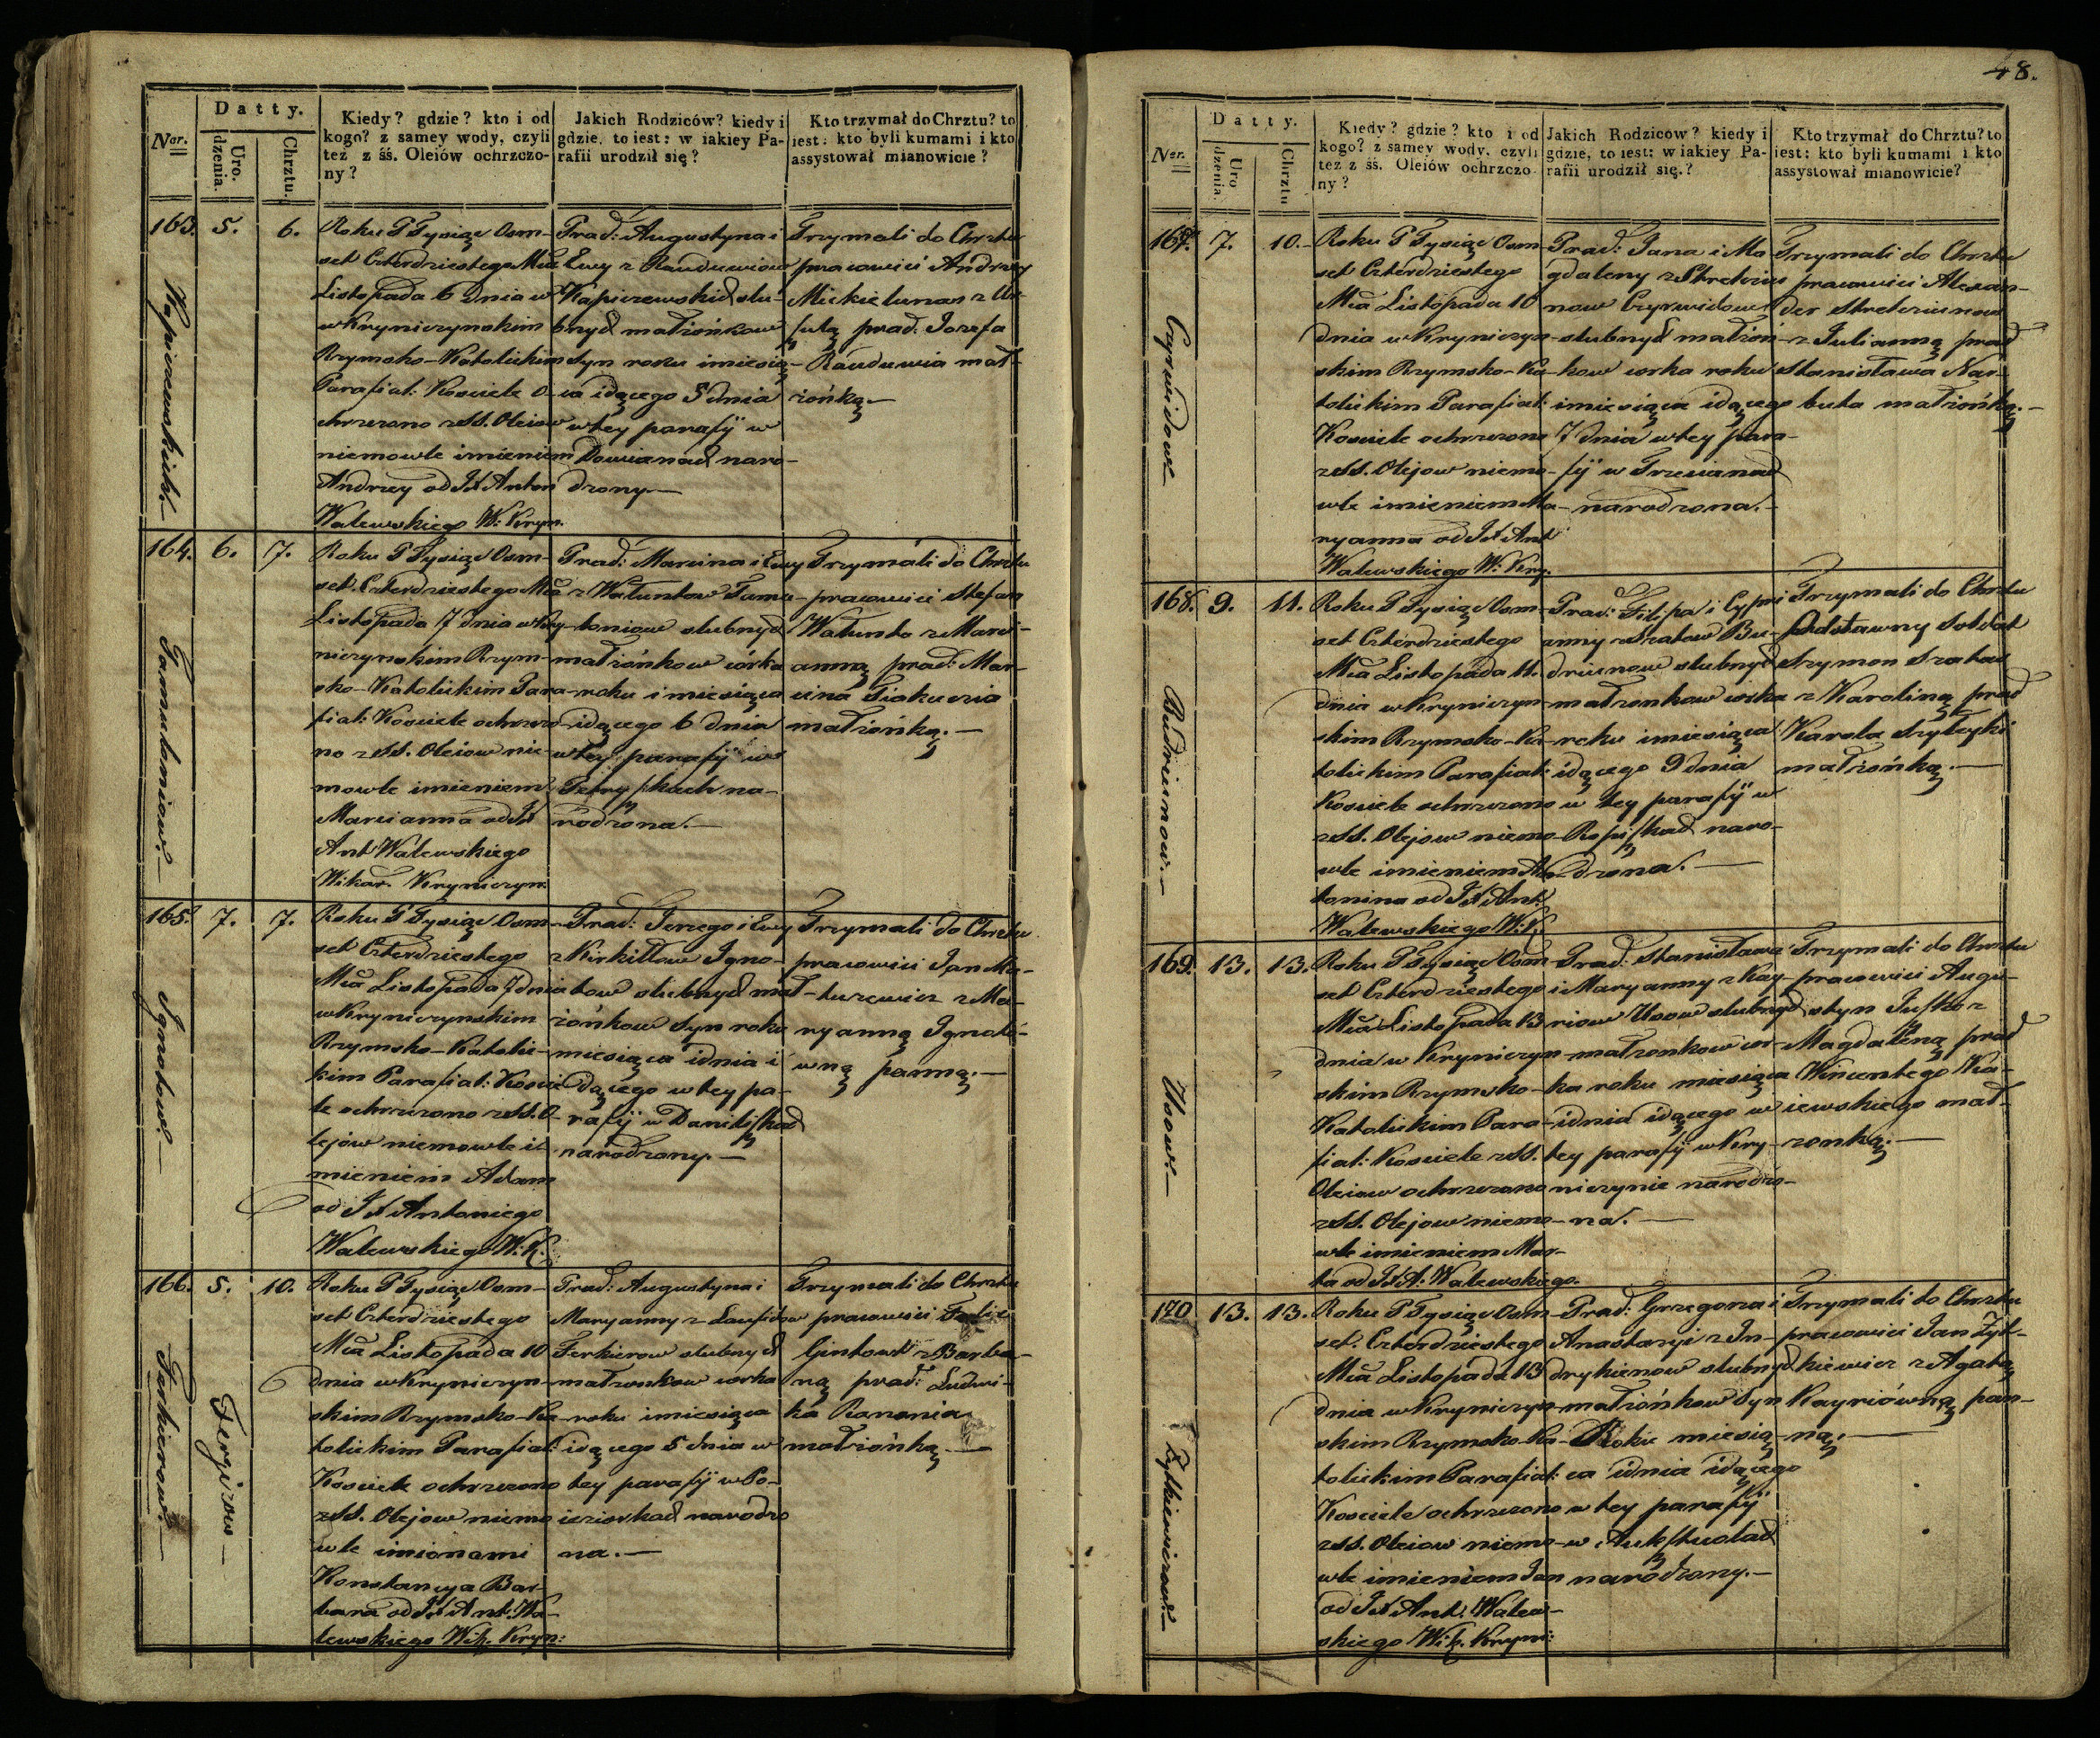 Datty.
Ner.
Uro.
dzenia.
Chrztu.
Kiedy? gdzie? kto i od
kogo? z samey wody, czyli
też z śś. Oleiów ochrzczo-
ny?
Jakich Rodziców? kiedy i
gdzie, to iest: w iakiey Pa-
rafii urodził się?
Kto trzymał do Chrztu? to
iest: kto byli kumami i kto
assystował mianowicie?
163. 5. 6.
Roku P Tysiąc Osm-
set Czterdziestego Mca
Listopada 6 dnia w
w Kryniczynskim
Rzymsko-Katolickim
Parafial: Kosciele o-
chrzczono z SS. Oleiow
niemowle imieniem
Andrzey od JX Anton
Walewskiego W: Kryn.
Prad: Augustyna i
Ewy z
slu-
bnych małżónkow
syn roku i miesią-
ca idącego 5 dnia
w tey parafij w
naro-
dzony.—
Trzymali do Chrztu
pracowici Andrzey
z Ur-
szulą prad: Jozefa
Rauduwia mał-
żónką.—
164. 6. 7.
Roku P Tysiąc Osm-
set Czterdziestego Mca
Listopada 7 dnia w Kry-
niczynskim Rzym-
sko-Katolickim Para-
fial: Kosciele ochrzczo-
no z SS. Oleiow nie-
mowle imieniem
Marcianna od JX
Ant Walewskiego
Wikar. Kryniczyn.
Prad: Marcina i Ewy
z Watuntow Tamu-
loniow slubnych
małżónkow córka
roku i miesiąca
idącego 6 dnia
w tey parafij w
na-
rodzona.—
Trzymali do Chrztu
pracowici Stefan
Watunto z Marci-
anną prad: Mar-
cina
małżónką.—
Tamuloniow.—
165. 7. 7.
Roku P Tysiąc Osm-
set Czterdziestego
Mca Listopada 7 dnia
w Krynicznynskim
Rzymsko-Katolic-
kim Parafial: Koscie
le ochrzczono z SS. O-
lejow niemowle i-
mieniem Adam
od JX Antoniego
Walewskiego W. K.
Prad: Jerzego i Ewy
z Kirkiłłow Igna-
tow slubnych mał-
żónkow syn roku
miesiąca i dnia i
dącego w tey pa-
rafij w Daniliszkach
narodzony.—
Trzymali do Chrztu
pracowici Jan Ma-
turewicz z Ma-
ryanną Ignató-
wną panną.—
Ignatow.—
166. 5. 10.
Roku P Tysiąc Osm-
set Czterdziestego
Mca Listopada 10
dnia w Krynicznyn-
skim Rzymsko-Ka-
tolickim Parafial:
Kosciele ochrzczono
z SS. Olejow niemo
wle imionami
Konstancya Bar-
bara od JX Ant. Wa-
lewskiego Wik. Kryn:
Prad: Augustyna i
Maryanny z
Ferkierow slubnych
małżonkow corka
roku i miesiąca
idącego 5 dnia w
tey parafij w Po-
ieziorkach narodzo
na.—
Trzymali do Chrztu
pracowici
Gintowt z Barba-
rą prad: Ludwi-
ka
małżónką.—
Ferkierow.—
48.
Datty.
Ner.
Uro
dzenia.
Chrztu
Kiedy? gdzie? kto i od
kogo? z samey wody, czyli
też z śś. Oleiów ochrzczo-
ny?
Jakich Rodziców? kiedy i
gdzie, to iest: w iakiey Pa-
rafii urodził się.?
Kto trzymał do Chrztu? to
iest: kto byli kumami i kto
assystował mianowicie?
167. 7. 10.
Roku P Tysiąc Osm-
set Czterdziestego
Mca Listopada 10
dnia w Krynicznyn-
skim Rzymsko-Ka-
tolickim Parafial:
Kosciele ochrzczono
z SS. Olejow niemo-
wle imieniem Ma-
ryanna od JX Ant
Walewskiego W: Kry.
Prad: Jana i Ma
gdaleny z
now Czyrwidow
slubnych małżón-
kow corka roku
i miesiąca idącego
7 dnia w tey para-
fij w
narodzona.—
Trzymali do Chrztu
pracowici Alexan-
der
z Julianną prad
Stanisława Nar-
buta małżónką.—
Czyrwidow.—
168. 9. 11.
Roku P Tysiąc Osm-
set Czterdziestego
Mca Listopada 11.
dnia w Krynicznyn-
skim Rzymsko-Ka-
tolickim Parafial:
Kosciele ochrzczono
z SS. Olejow niemo-
wle imieniem An-
tonina od JX Ant.
Walewskiego W. K.
Prad: Filipa i Cypri
anny z Szatow Bu-
driunow slubnych
małżonkow corka
roku i miesiąca
idącego 9 dnia
w tey parafij w
naro-
dzona.—
Trzymali do Chrztu
Odstawny Soldat
Szymon Szatas
z Karoliną prad
Karola
małżónką.—
Budriunow.—
169. 13. 13.
Roku P Tysiąc Osm-
set Czterdziestego
Mca Listopada 13
dnia w Krynicznyn-
skim Rzymsko-
Katolickim Para-
fial: Kosciele z SS.
Oleiow ochrzczono
z SS. Olejow niemo-
wle imieniem Mar-
ta od JX A: Walewskiego.
Prad: Stanisława
i Maryanny z Kay-
riow Usow slubnych
małżonkow cor-
ka roku miesiąca
i dnia idącego w
tey parafij w Kry-
niczynie narodzo-
na.—
Trzymali do Chrztu
pracowici Augu-
styn Juszko z
Magdaleną prad
Wincentego Ka-
iewskiego mał-
żonką.—
Usow.—
170. 13. 13.
Roku P Tysiąc Osm-
set Czterdziestego
Mca Listopada 13
dnia w Krynicznyn-
skim Rzymsko-Ka-
tolickim Parafial:
Kosciele ochrzczono
z SS. Oleiow niemo-
wle imieniem Jan
od JX Ant. Walew-
skiego Wik. Kryni:
Prad: Grzegorza i
Anastazyi z In-
drykienow slubnych
małżónkow Syn
Roku miesią-
ca i dnia idącego
w tey parafij
w
narodzony.—
Trzymali do Chrztu
pracowici Jan Zyt-
kiewicz z Agatą
Kayriówną pan-
ną.—
Zytkiewiczow.—